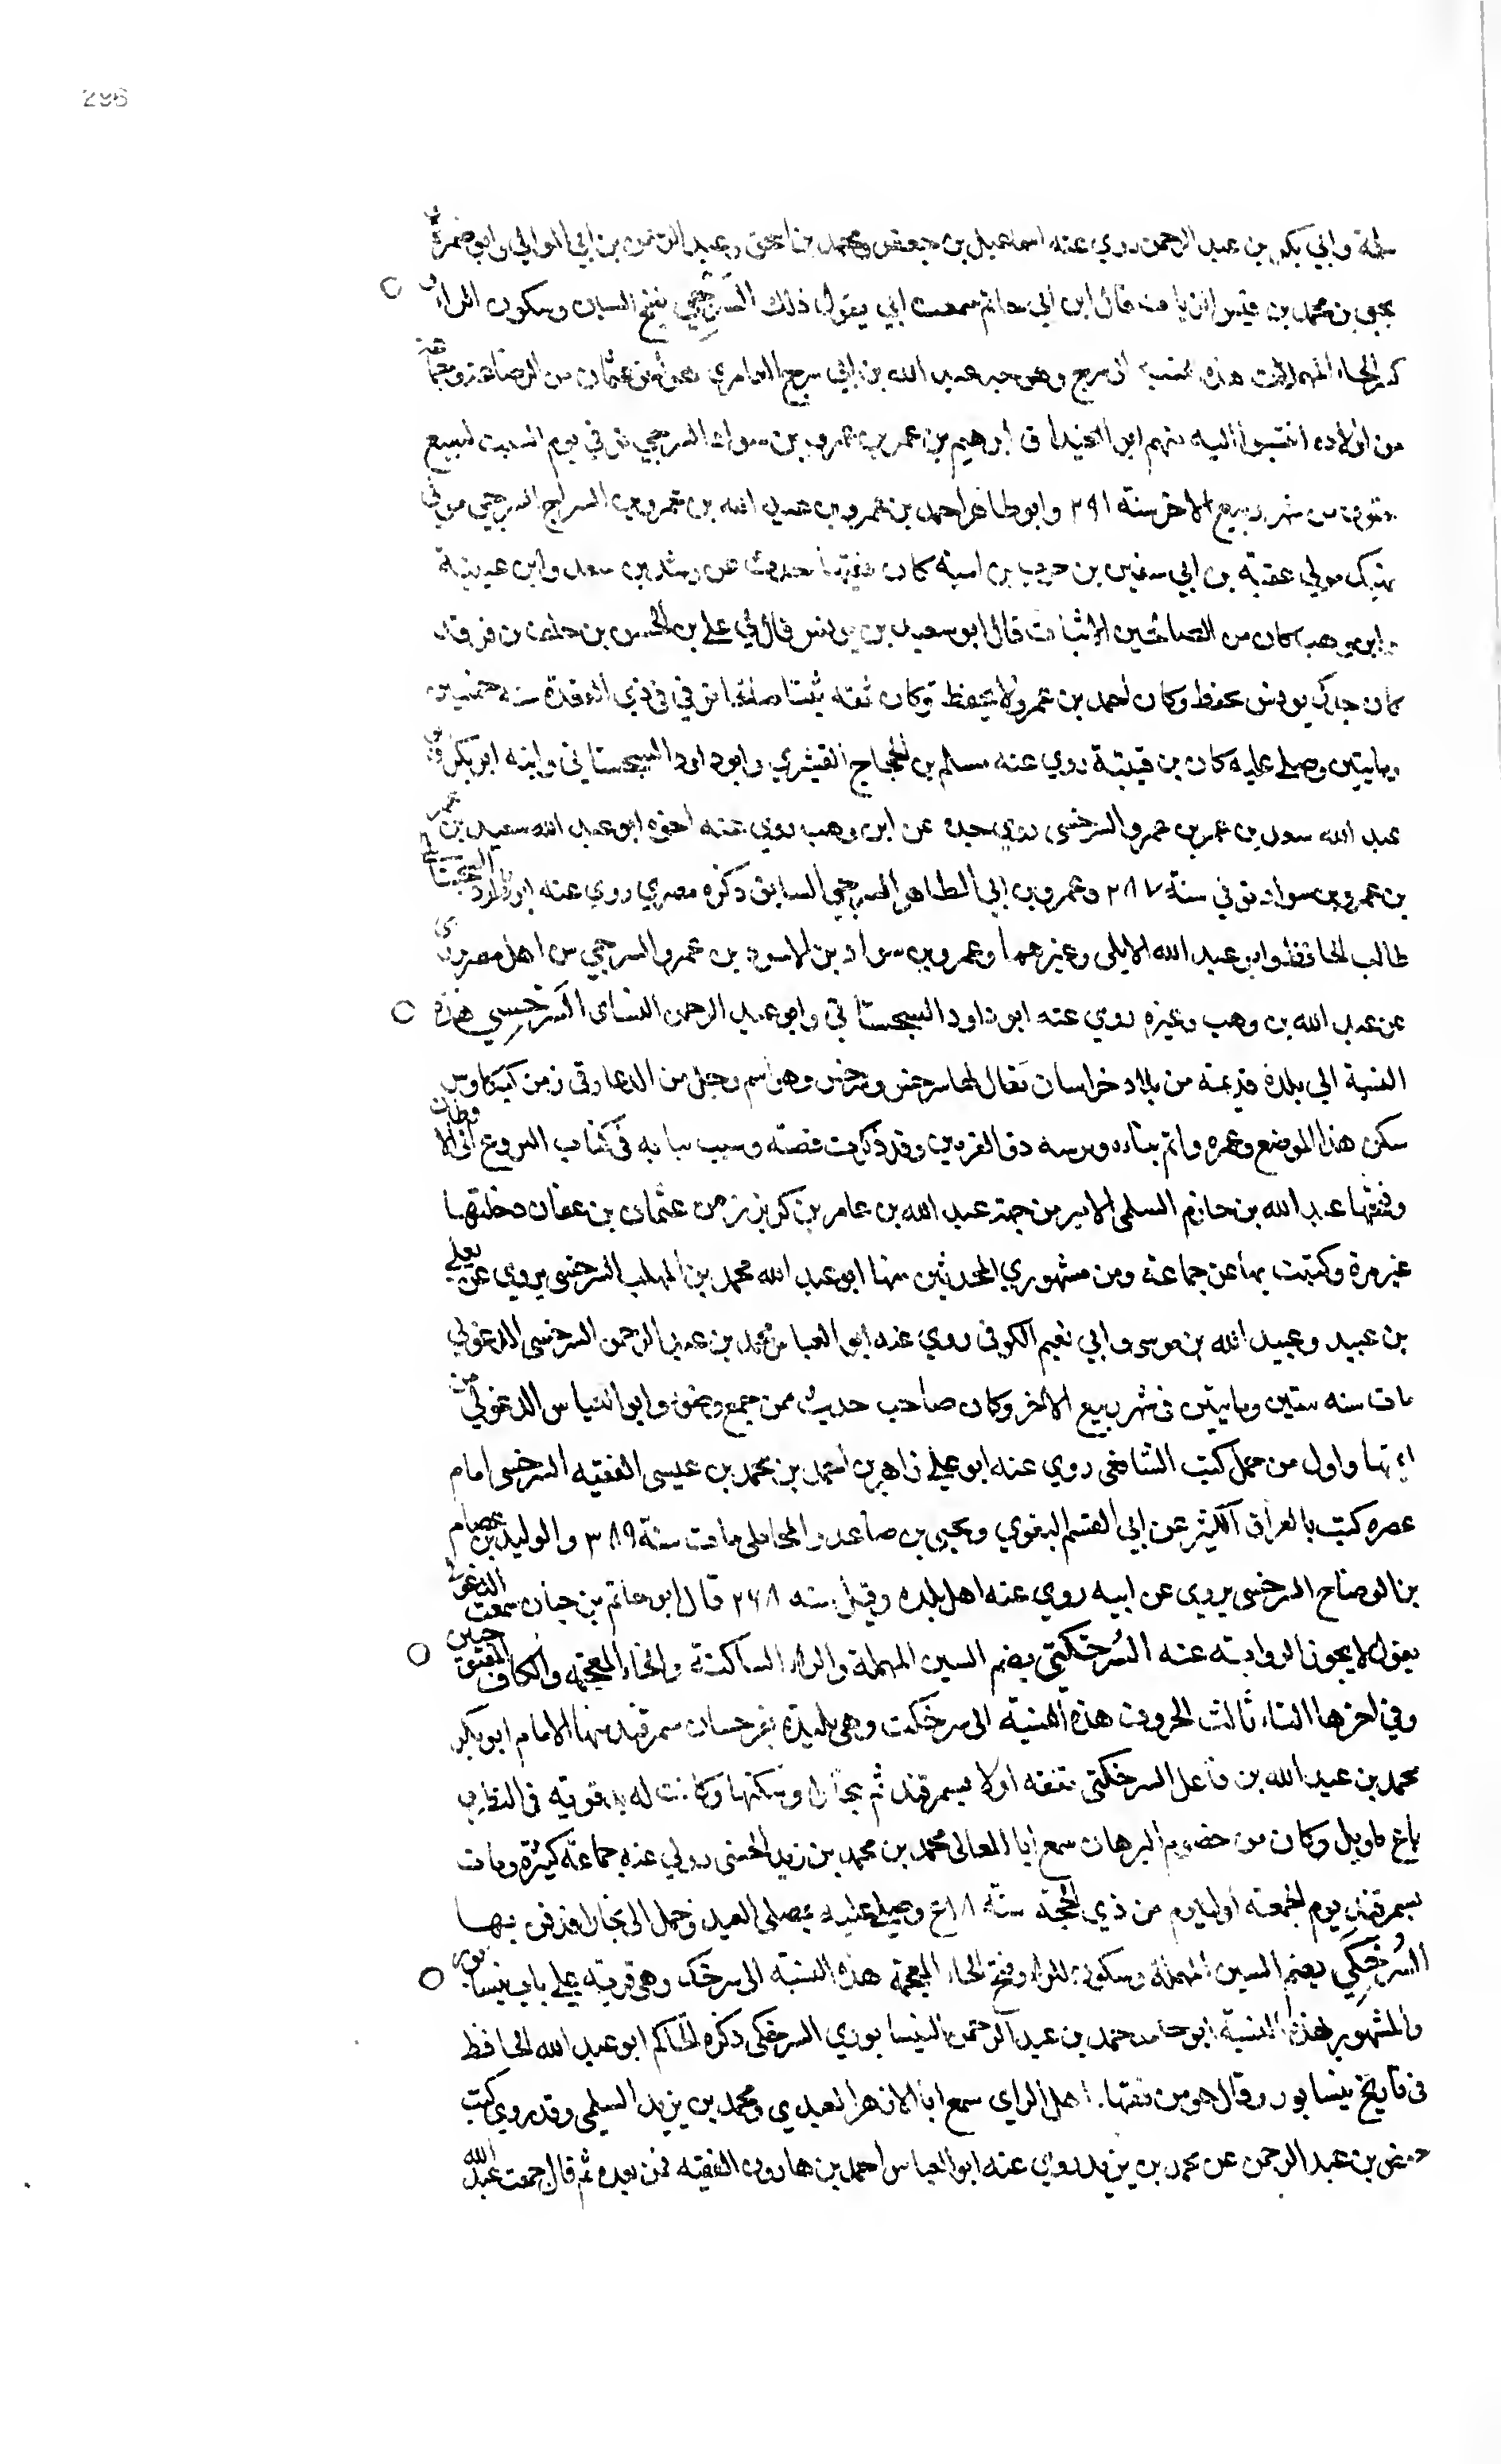 296
سلمة وابي بكر بن عبد الرحمن روي عنه اسماعيل بن جعفر ومحمد بن اسحق وعبد الرحمن بن ابي الموالي وابو ضمرة
يحيى بن محمد بن قيس قال ابن ابي حاتم سمعت ابي يقول ذلك السَرْحِي بفتح السين وسكون الراء
الحاء المهملات هذه النسبة الي سرح وهو جد عبد الله بن ابي سرح العامري من الرضاعة وجماعة
من اولاده انتسبوا اليه منهم ابو الغيداق ابرهيم بن عمر بن عمرو بن سواد السرحي توفي يوم السبت لسبع
من شهر ربيع الاخر سنة ٢٩١ وابو طاهر احمد بن عمرو بن عبد الله بن عمرو بن السراج السرحي مولي
نهيك مولي عقبة بن ابي سفين بن حرب بن امية كان فقيها حدث عن رشدين بن سعد وابن عيينة
وابن وهب كان من الصالحين الاثبات قال ابو سعيد بن يونس قال لي علي بن الحسن بن خلف بن فرقد
كان جدك يونس يحفظ وكان احمد بن عمرو لا يحفظ وكان ثقة ثبتا صالحا توفي في ذي القعدة سنه خمسين
ومايتين وصلي عليه بكار بن قتيبة روي عنه مسلم بن الحجاج القشيري وابو داود السجستاني وابنه ابو بكر
عبد الله بن عمر بن عمرو السرحسي روي جده عن ابن وهب روي عنه اخوه ابو عبد الله سعيد بن
بن عمرو بن سواد توفي في سنة ٢٨٧ وعمرو بن ابي الطاهر السرحي السابق ذكره مصري روي عنه ابو
طالب الحافظ وابو عبد الله الايلي وغيرهما وعمرو بن سواد بن الاسود بن عمرو السرحي من اهل مصر يروي
عن عبد الله بن وهب وغيره روي عنه ابو داود السجستاني وابو عبد الرحمن النساى السَرَخْسِي هذه
النسبة الي بلدة قديمة من بلاد خراسان يقال لها سرخس وسرخس وهو اسم رجل من الدعار في زمن كيكاوس
سكن هذا الموضع وعمره واتم بناءه ومدينته ذو القرنين وقد ذكرت قصته وسبب بنايه في كتاب النزوع الي الاوطان
وفتحها عبد الله بن خازم السلمي الامير من جهة عبد الله بن عامر بن كريز زمن عثمان بن عفان دخلتها
غير مرة وكتبت بها عن جماعة ومن مشهوري المحدثين منها ابو عبد الله محمد بن المهلب السرخسي يروي عن يعلي
بن عبيد وعبيد الله بن موسي وابي نعيم الكوفي روي عنه ابو العباس محمد بن عبد الرحمن السرخسي الدغولي
مات سنه ستين ومايتين في شهر ربيع الاخر وكان صاحب حديث ممن جمع وصنف وابو العباس الدغولي من
ايمتها واول من حمل كتب الشافعي روي عنه ابو علي زاهر بن احمد بن محمد بن عيسى الفقيه السرخسي امام
عصره كتب بالعراق الكثير عن ابي القسم البغوي ويحيي بن صاعد والمحاملي مات سنة ٣٨٩ والوليد بن عصام
بن الوضاح السرخسي يروي عن ابيه روي عنه اهل بلده وقيل سنه ٢٦٨ قال ابو حاتم بن حبان سمعت الدغولي
يقول لا يجوز الرواية عنه السُرْخَكَتي بضم السين المهملة والراء الساكنة والخاء المعجمة والكاف المفتوحتين
وفي اخرها التاء ثالث الحروف هذه النسبة الى سرخكت وهي بليدة بغرجستان سمرقند منها الامام ابو بكر
محمد بن عبد الله بن فاعل السرخكتي تفقه اولا بسمرقند ثم بخارا وسكنها وكانت له يد قوية في النظر
باع طويل وكان من خصوم البرهان سمع ابا المعالى محمد بن محمد بن زيد الحسني روي عنه جماعة كثيرة ومات
بسمرقند يوم الجمعة اول يوم من ذي الحجة سنة وصلي عليه بمصلي العيد وحمل الى بخارا فدفن بها
السُرْخَكِي بضم السين المهملة وسكون الراء وفتح الخاء المعجمة هذه النسبة الى سرخك وهي قرية علي باب نيسابور
والمشهور بهذه النسبة ابو حامد بن عبد الرحمن النيسابوري السرخكي ذكره الحاكم ابو عبد الله الحافظ
في تاريخ نيسابور وقال هو من فقهاء اهل الراي سمع ابا الازهر العبدي ومحمد بن يزيد السلمي وقد روي كتب
حفص بن عبد الرحمن عن محمد بن يزيد روي عنه ابو العباس احمد بن هارون الفقيه فمن بعده ثم قال سمعت عبد الله